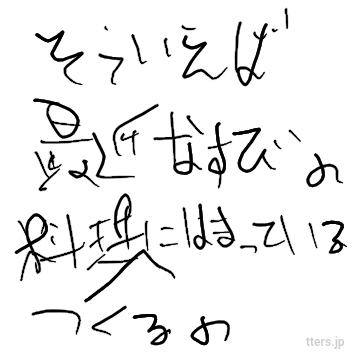 そういえば
最近なすびの
料理にはまっている
つくるの
tters.jp